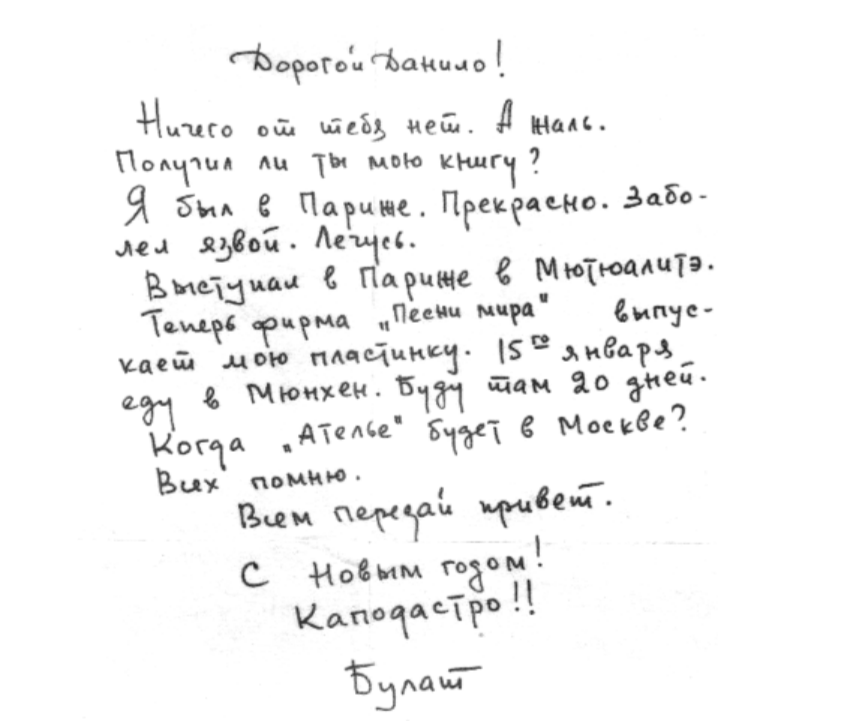 Дорогой Данило!
Ничего от тебя нет. А жаль.
Получил ли ты мою книгу?
Я был в Париже. Прекрасно. Забо-
лел язвой. Лечусь.
Выступал в Париже в Мютюалитэ.
Теперь фирма „Песни мира" выпус-
кает мою пластинку. 15го января
еду в Мюнхен. Буду там 20 дней.
Когда „Ателье" будет в Москве?
Всех помню.
Всем передай привет.
С Новым годом!
Каподастро!!
Булат